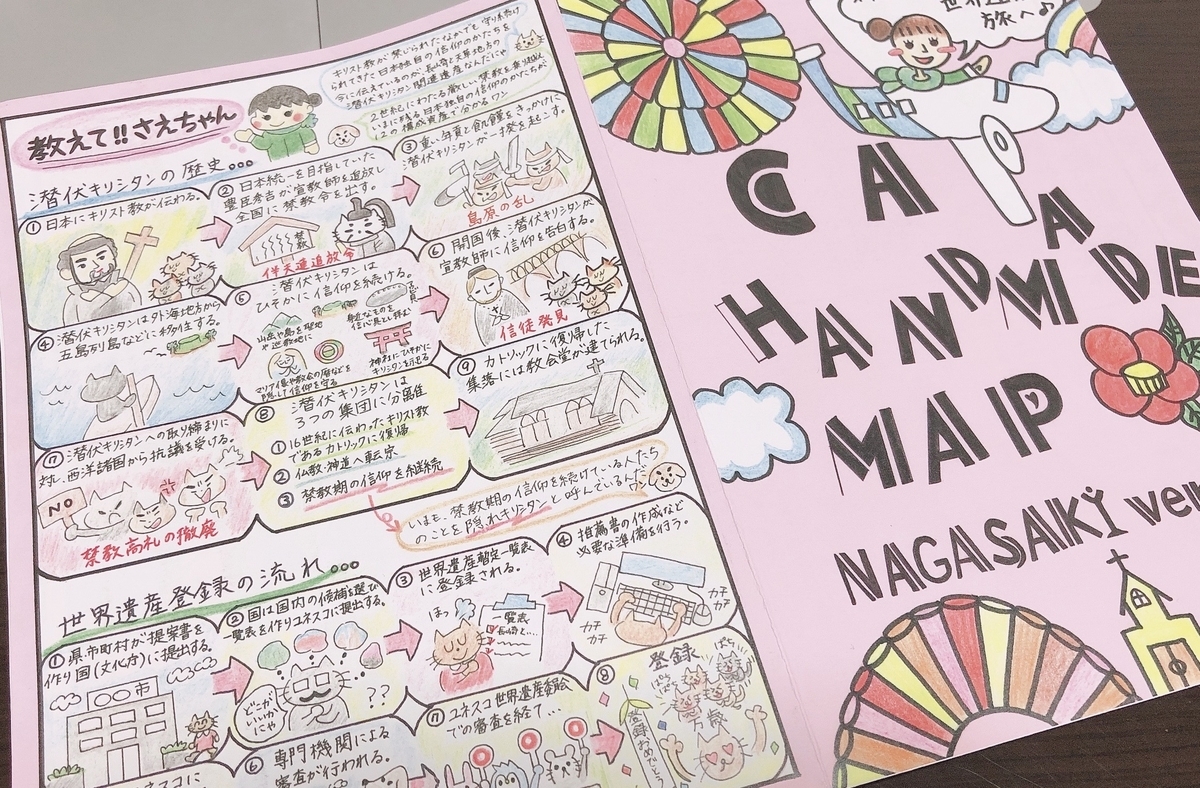 キリスト教が禁じられたなかでも守り続け
られてきた日本独自の信仰のかたちを
今に伝えているのが、長崎と天草地方の
潜伏キリシタン関連遺産なんだにゃ
2世紀にわたる厳しい禁教を乗り越え
いまに残る日本独自の信仰のかたちが
12の構成資産で分かるワン
教えて!!さえちゃん
潜伏キリシタンの歴史…
①日本にキリスト教が伝わる。
②日本統一を目指していた
豊臣秀吉が宣教師を追放し
全国に禁教令を出す。
禁教
伴天連追放令
③重い年貢と飢饉をきっかけに
潜伏キリシタンが一揆を起こす。
島原の乱
④潜伏キリシタンは外海地方から
五島列島などに移住する。
⑤潜伏キリシタンは
ひそかに信仰を続ける。
山岳や島を聖地
や殉教地に
身近なものを
信心具として拝む
マリア像や教会の暦などを
隠して信仰を守る
神社にひそかに
キリシタンを祀る
⑥開国後、潜伏キリシタンが
宣教師に信仰を告白する。
信徒発見
⑦潜伏キリシタンへの取り締まりに
対し、西洋諸国から抗議を受ける。
NO
禁教高札の撤廃
⑧潜伏キリシタンは
3つの集団に分離
①16世紀に伝わったキリスト教
であるカトリックに復帰
②仏教・神道へ転宗
③禁教期の信仰を継続
⑨カトリックに復帰した
集落には教会堂が建てられる。
いまも、禁教期の信仰を続けている人たち
のことを隠れキリシタンと呼んでいるんだ
世界遺産登録の流れ…
①県市町村が提案書を
作り国(文化庁)に提出する。
○○市
②国は国内の候補を選び
一覧表を作りユネスコに提出する。
どこが
いいか
にゃ
??
③世界遺産暫定一覧表
に登録される。
ほっ
一覧表
長崎と…
④推薦書の作成など
必要な準備を行う。
カチ
カチ
カチ
カチ
⑥専門機関による
審査が行われる。
⑦ユネスコ世界遺産委員会
での審査を経て…
⑧登録
ぱちぱち
ぱちぱち
万歳
登録おめでとう
旅へ♪
CA
HANDMADE
MAP
NAGASAKI ver